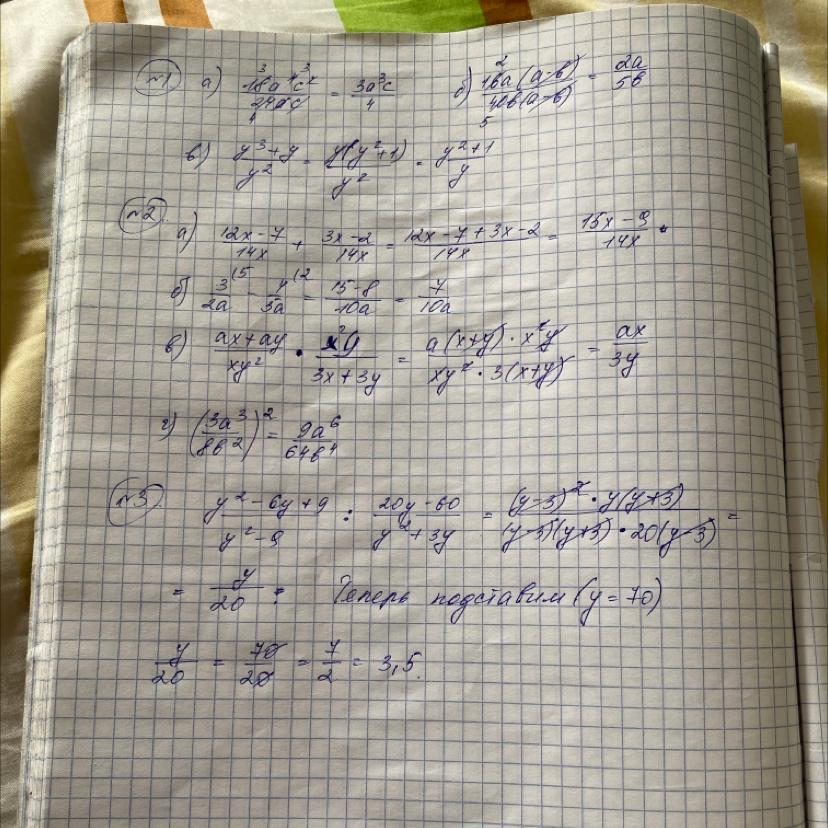 №1 а) 18a⁴c²/24ac = 3a³c/4 б) 16a(a-b)/40b(a-b) = 2a/5b
в) y³+y/y² = y(y²+1)/y² = y²+1/y
№2. а) 12x-7/14x + 3x-2/14x = 12x-7+3x-2/14x = 15x-9/14x.
б) 3/2a (5 - 4/5a (2 = 15-8/10a = 7/10a
в) ax+ay/xy² · x²y/3x+3y = a(x+y)·x²y/xy²·3(x+y) = ax/3y
г) (3a³/8b²)² = 9a⁶/64b⁴
№3. y²-6y+9/y²-9 : 20y-60/y²+3y = (y-3)²·y(y+3)/(y-3)(y+3)·20(y-3) =
= y/20 : Теперь подставим (y=70)
y/20 = 70/20 = 7/2 = 3,5.